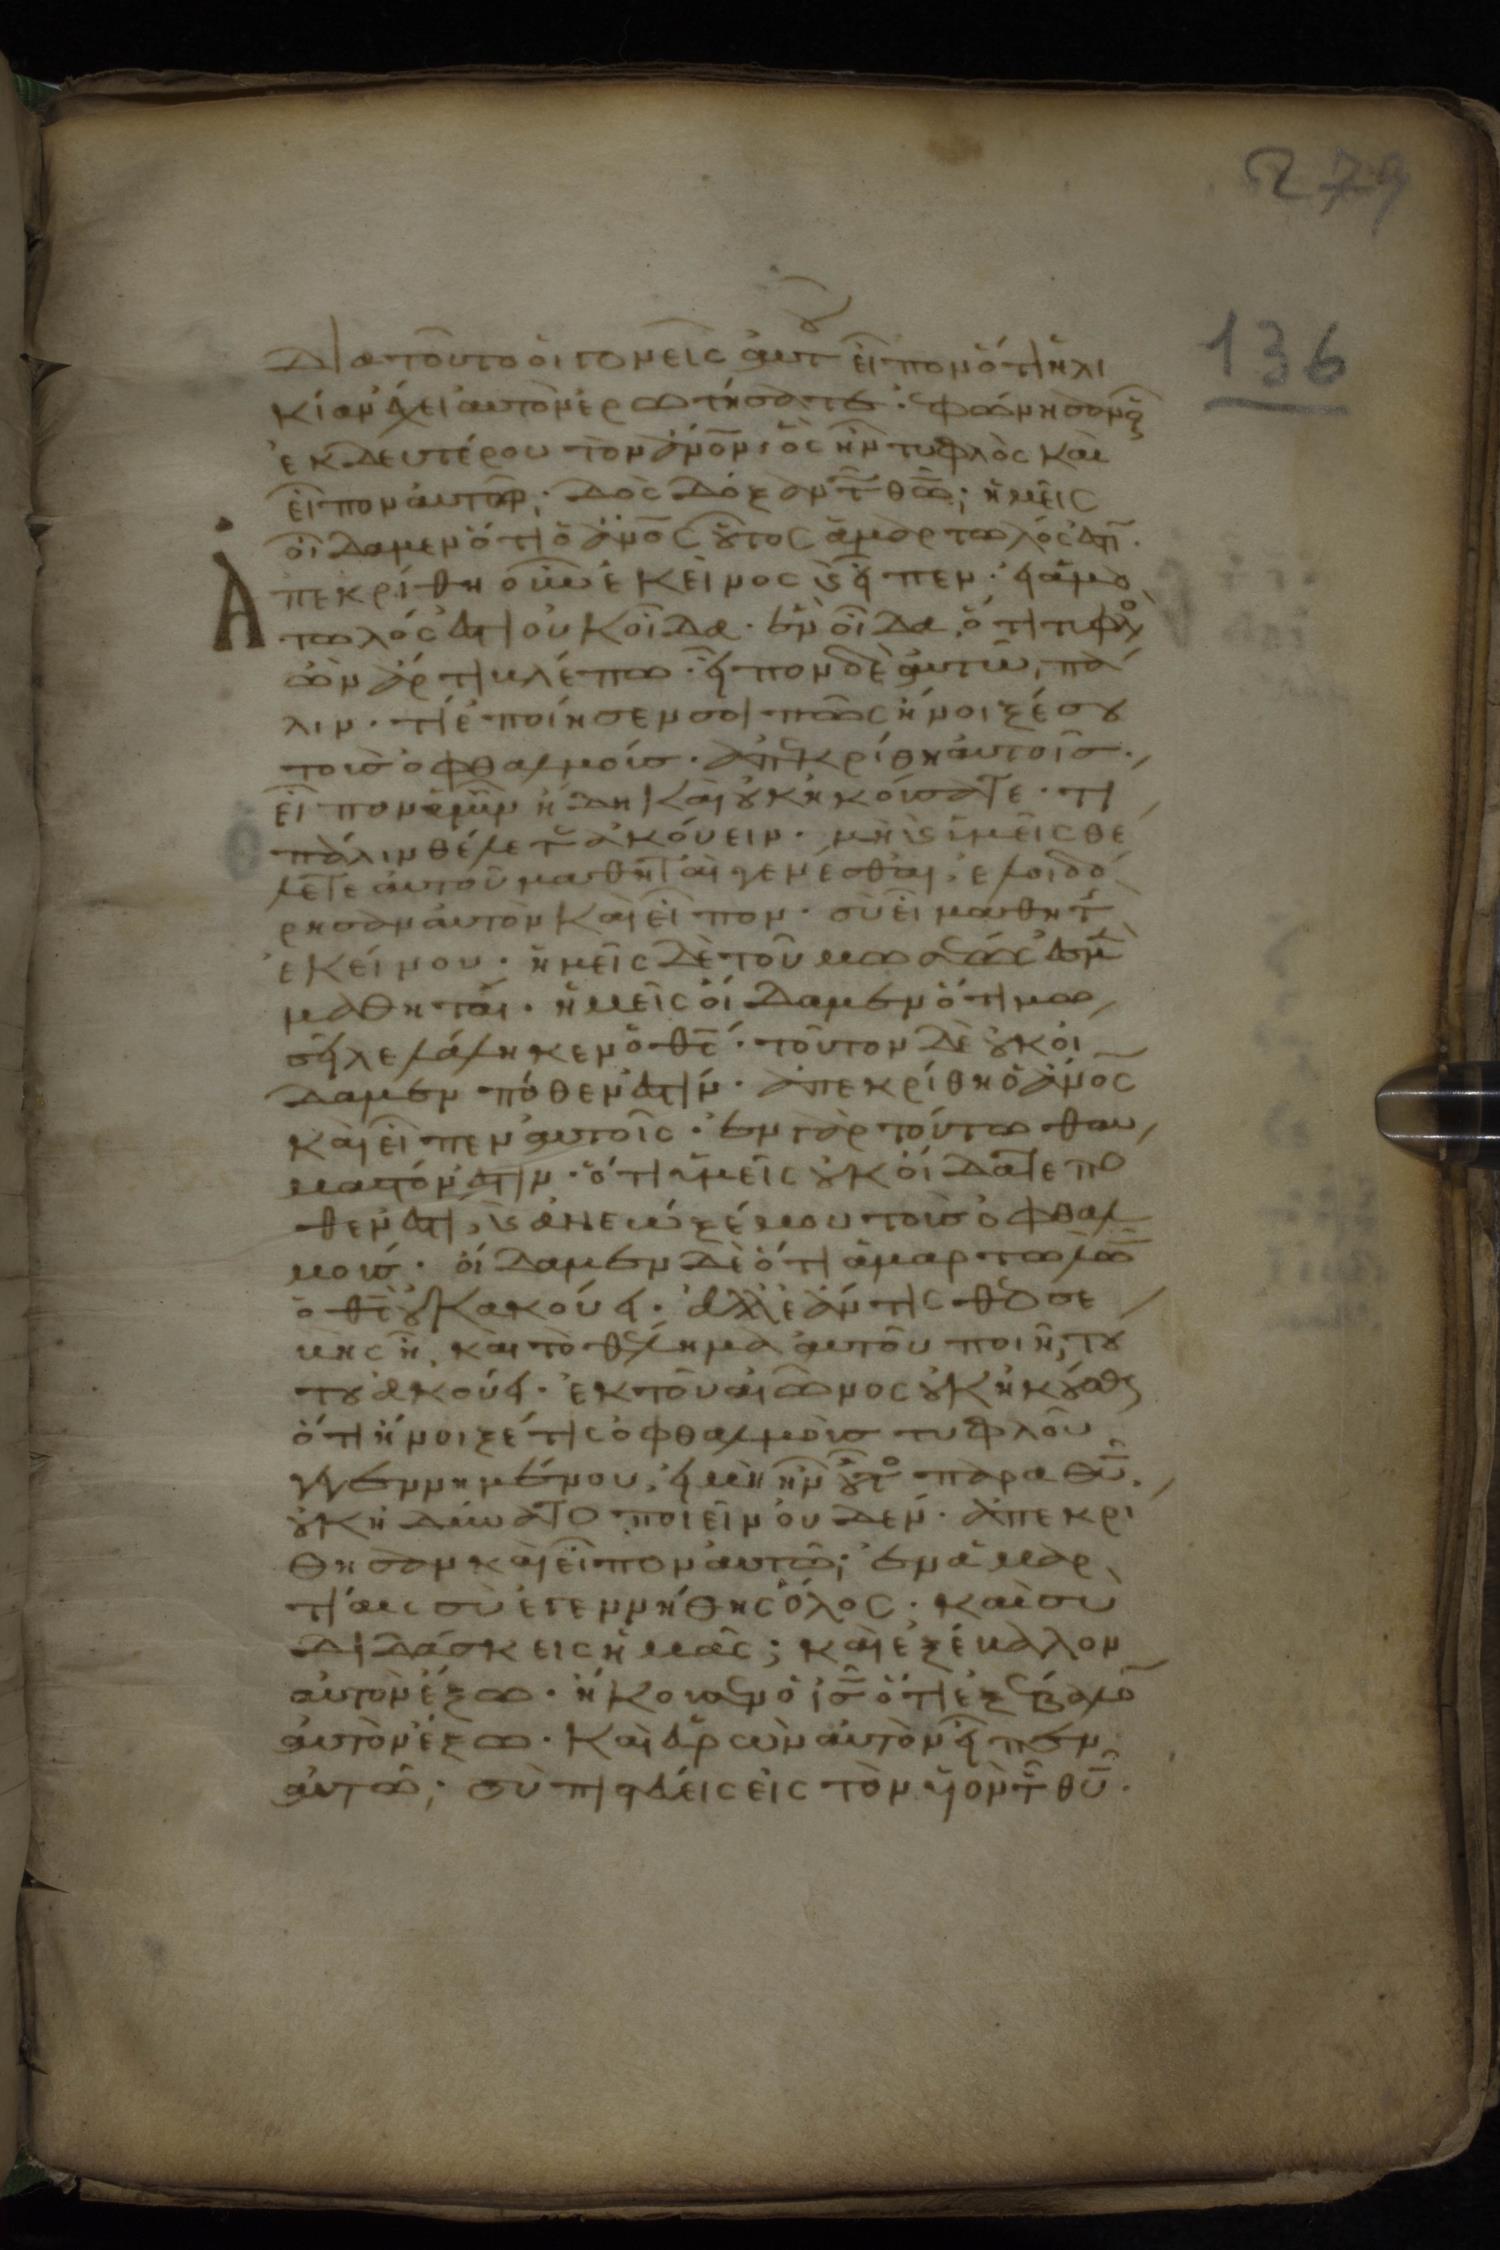 279
136
Διατοῦτο ὁι γονεῖς ἀυτ εἶπον ὅτι ἡλι
κίαν ἔχει αυτὸν ἐρωτήσατε· φωνησαν
ἐκδευτέρου τὸν ἄνον, ὃς ἦν τυφλὸς καὶ
εἶπον αὐτῶ· δὸς δόξαν τ θω· ἡμεῖς
οἴδαμεν ὅτι ὁ ἄνος οὗτος ἁμαρτωλός ἐστι.
Ἀπεκρίθη οὖν ἐκεῖνος κ εἶπεν· εἰ ἁμαρ
τωλός ἐστι οὐκ οἶδα· ἓν οἶδα, ὅτι τυφλ
ὢν ἄρτι βλέπω· εἶπον δὲ αυτῶ, πά
λιν· τί ἐποίησεν σοι πῶς ἤνοιξέ σου
τοὺσ ὀφθαλμούσ· ἀπεκρίθη ἀυτοῖσ.
εἶπον ὑμῖν ἤδη καὶ οὐκ ἠκούσατε· τί
πάλιν θέλετε ἀκόυειν· μὴ κ ὑμεῖς θέ
λετε αυτοῦ μαθηταὶ γενέσθαι· ἐλοιδό
ρησαν ἀυτὸν καὶ εἶπον· σὺ εἶ μαθητ
ἐκείνου· ἡμεῖς δὲ τοῦ μωσέως ἐσμὲ
μαθηταί· ἡμεῖς ὁίδαμεν ὅτι μω
σῆ λελάληκεν ὁ θς· τοῦτον δὲ οὐκ ὁί
δαμεν πόθεν ἐστίν· ἀπεκρίθη ὁ ἄνος
καὶ εἶπεν αυτοῖς· ἐν γὰρ τούτω θαυ
μαστόν ἐστιν· ὅτι ὑμεῖς οὐκ ὁίδατε πό
θεν ἐστι, κ ἀνεωξέ μου τοὺσ ὀφθαλ
μούσ· ὁίδαμεν δὲ ὅτι ἁμαρτωλῶ
ὁ θς οὐκ ακούει· ἀλλ' ἐάν τις θεοσε
βὴς ἦ, καὶ τὸ θέλημα αὐτοῦ ποιῆ, του
του ἀκούει· ἐκ τοῦ αἰῶνος οὐκ ἠκούσθη
ὅτι ἤνοιξέ τις ὀφθαλμοὺσ τυφλοῦ
γεγεννημένου, εἰ μὴ ἦν οὗτο παρα θυ.
οὐκ ἠδύνατο ποιεῖν ὀυδέν· ἀπεκρί
θησαν καὶ εἶπον αυτῶ· ἐν ἁμαρ
τίαις σὺ ἐγεννήθης ὅλος· καὶ σὺ
διδάσκεις ἡμᾶς; καὶ ἐξέβαλον
αὐτὸν ἔξω· ἤκουσεν ὁ ισ ὅτι ἐξέβαλο
αὐτὸν ἔξω· καὶ εὑρὼν αὐτὸν εἶπεν
αὐτῶ· σὺ πιστεύεις εἰς τὸν υἱὸν τ θυ.